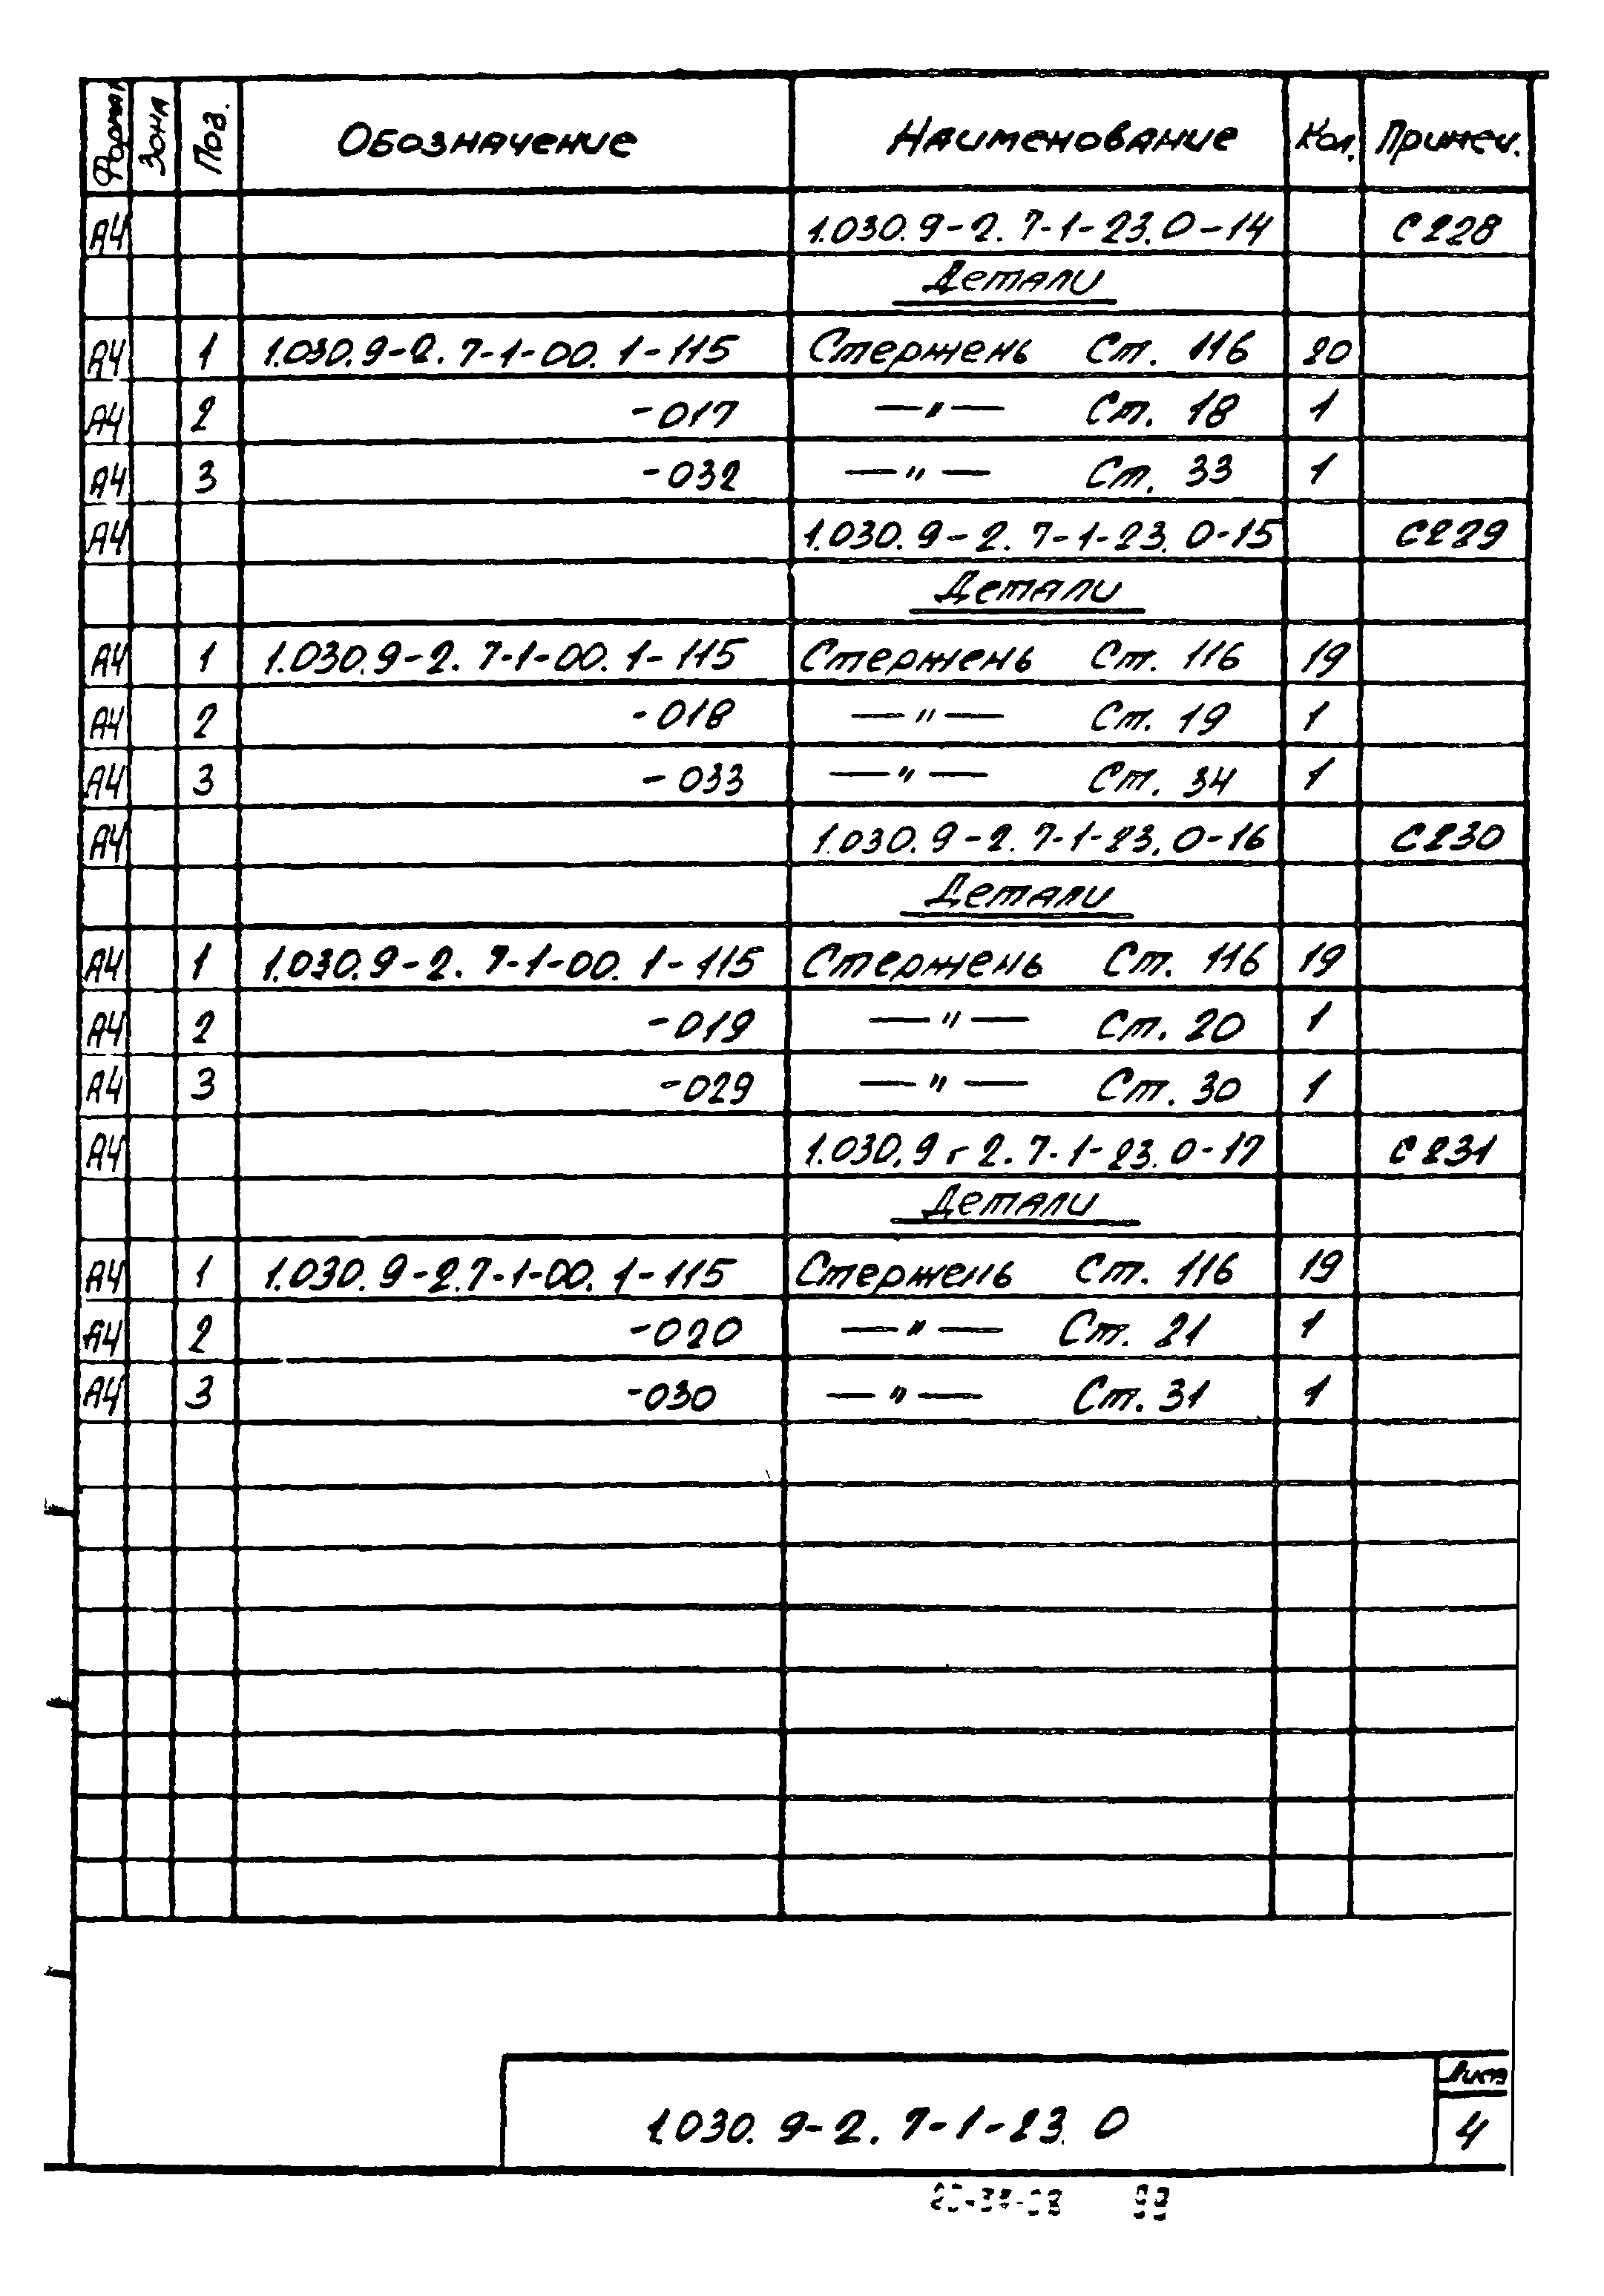 Формат Зона Поз. Обозначение Наименование Кол. Примеч.
А4 1.030.9-2.7-1-23.0-14 С228
Детали
А4 1 1.030.9-2.7-1-00.1-115 Стержень Ст. 116 20
А4 2 -017 —"— Ст. 18 1
А4 3 -032 —"— Ст. 33 1
А4 1.030.9-2.7-1-23.0-15 С229
Детали
А4 1 1.030.9-2.7-1-00.1-115 Стержень Ст. 116 19
А4 2 -018 —"— Ст. 19 1
А4 3 -033 —"— Ст. 34 1
А4 1.030.9-2.7-1-23.0-16 С230
Детали
А4 1 1.030.9-2.7-1-00.1-115 Стержень Ст. 116 19
А4 2 -019 —"— Ст. 20 1
А4 3 -029 —"— Ст. 30 1
А4 1.030.9-2.7-1-23.0-17 С231
Детали
А4 1 1.030.9-2.7-1-00.1-115 Стержень Ст. 116 19
А4 2 -020 —"— Ст. 21 1
А4 3 -030 —"— Ст. 31 1
Лист
1.030.9-2.7-1-23.0 4